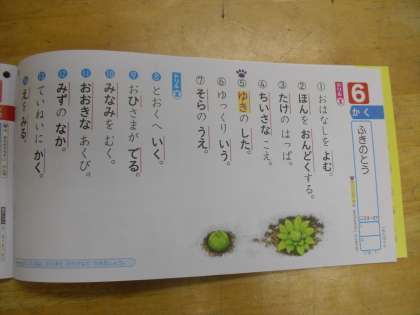 6
かく
ふきのとう
①おはなしを よむ。
②ほんを おんどくする。
③たけの はっぱ。
④ちいさな こえ。
⑤ゆきの した。
⑥ゆっくり いう。
⑦そらの うえ。
⑧とおくへ いく。
⑨おひさまが でる。
⑩みなみを むく。
⑪おおきな あくび。
⑫みずの なか。
⑬ていねいに かく。
⑭えを みる。